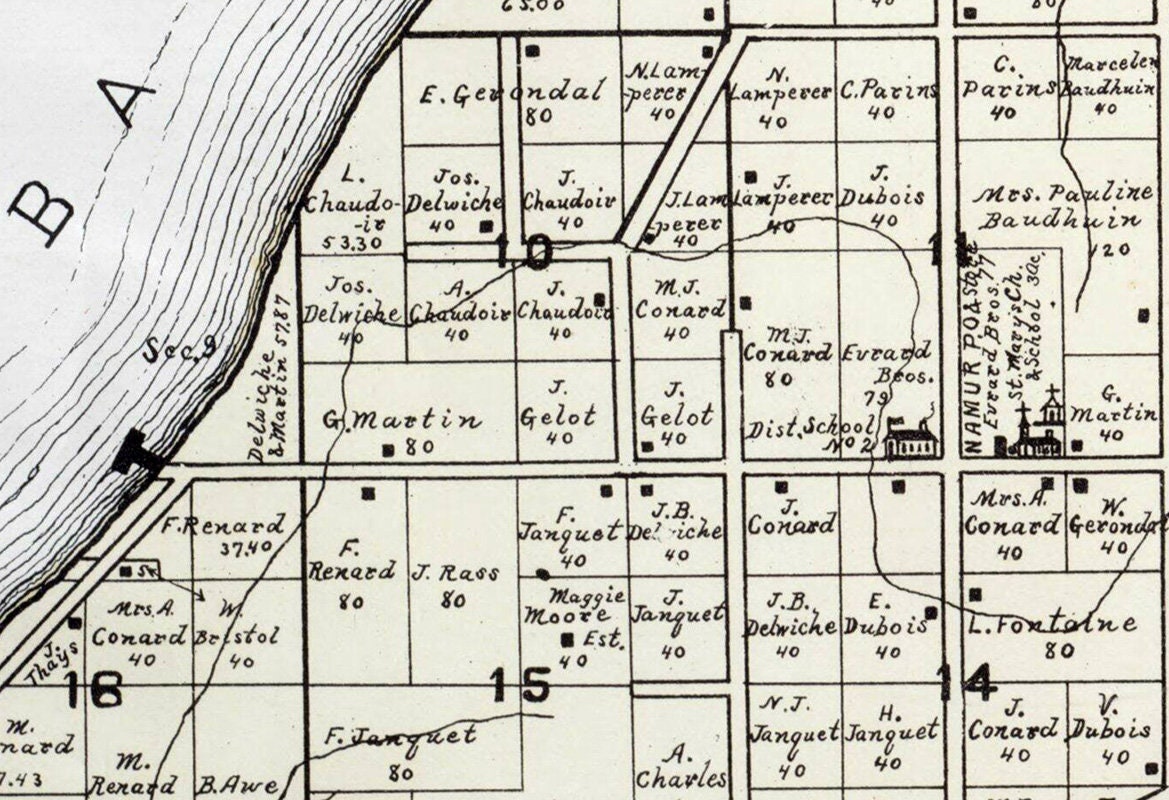 65.00
40
80
B A
E. Gerondal
80
N. Lam-
-perer
40
N.
Lamperer
40
C. Parins
40
C.
Parins
40
Marcelen
Baudhuin
40
L.
Chaudo-
-ir
53.30
Jos.
Delwiche
40
J.
Chaudoir
40
J. Lam
-perer
40
J.
Lamperer
40
J.
Dubois
40
Mrs. Pauline
Baudhuin
120
10
1
Jos.
Delwiche
40
A.
Chaudoir
40
J.
Chaudoir
40
M.J.
Conard
40
M.J.
Conard
80
Evrard
Bros.
79
NAMUR P.O. & Store
Evrard Bros. 77
St. Marys Ch.
& School 3 ac.
Sec. 9
Delwiche
& Martin 57.87
G. Martin
80
J.
Gelot
40
J.
Gelot
40
Dist. School
No 2
G.
Martin
40
F. Renard
37.40
F.
Renard
80
J. Rass
80
F.
Janquet
40
J.B.
40
J.
Conard
Mrs. A.
Conard
40
W.
Gerondal
40
Mrs. A.
Conard
40
W.
Bristol
40
Maggie
Moore
Est.
40
J.
Janquet
40
J.B.
Delwiche
40
E.
Dubois
40
L. Fontaine
80
J.
Thays
16
15
14
M.
nard
7.43
M.
Renard
B. Awe
F. Janquet
80
A.
Charles
N.J.
Janquet
40
H.
Janquet
40
J.
Conard
40
V.
Dubois
40